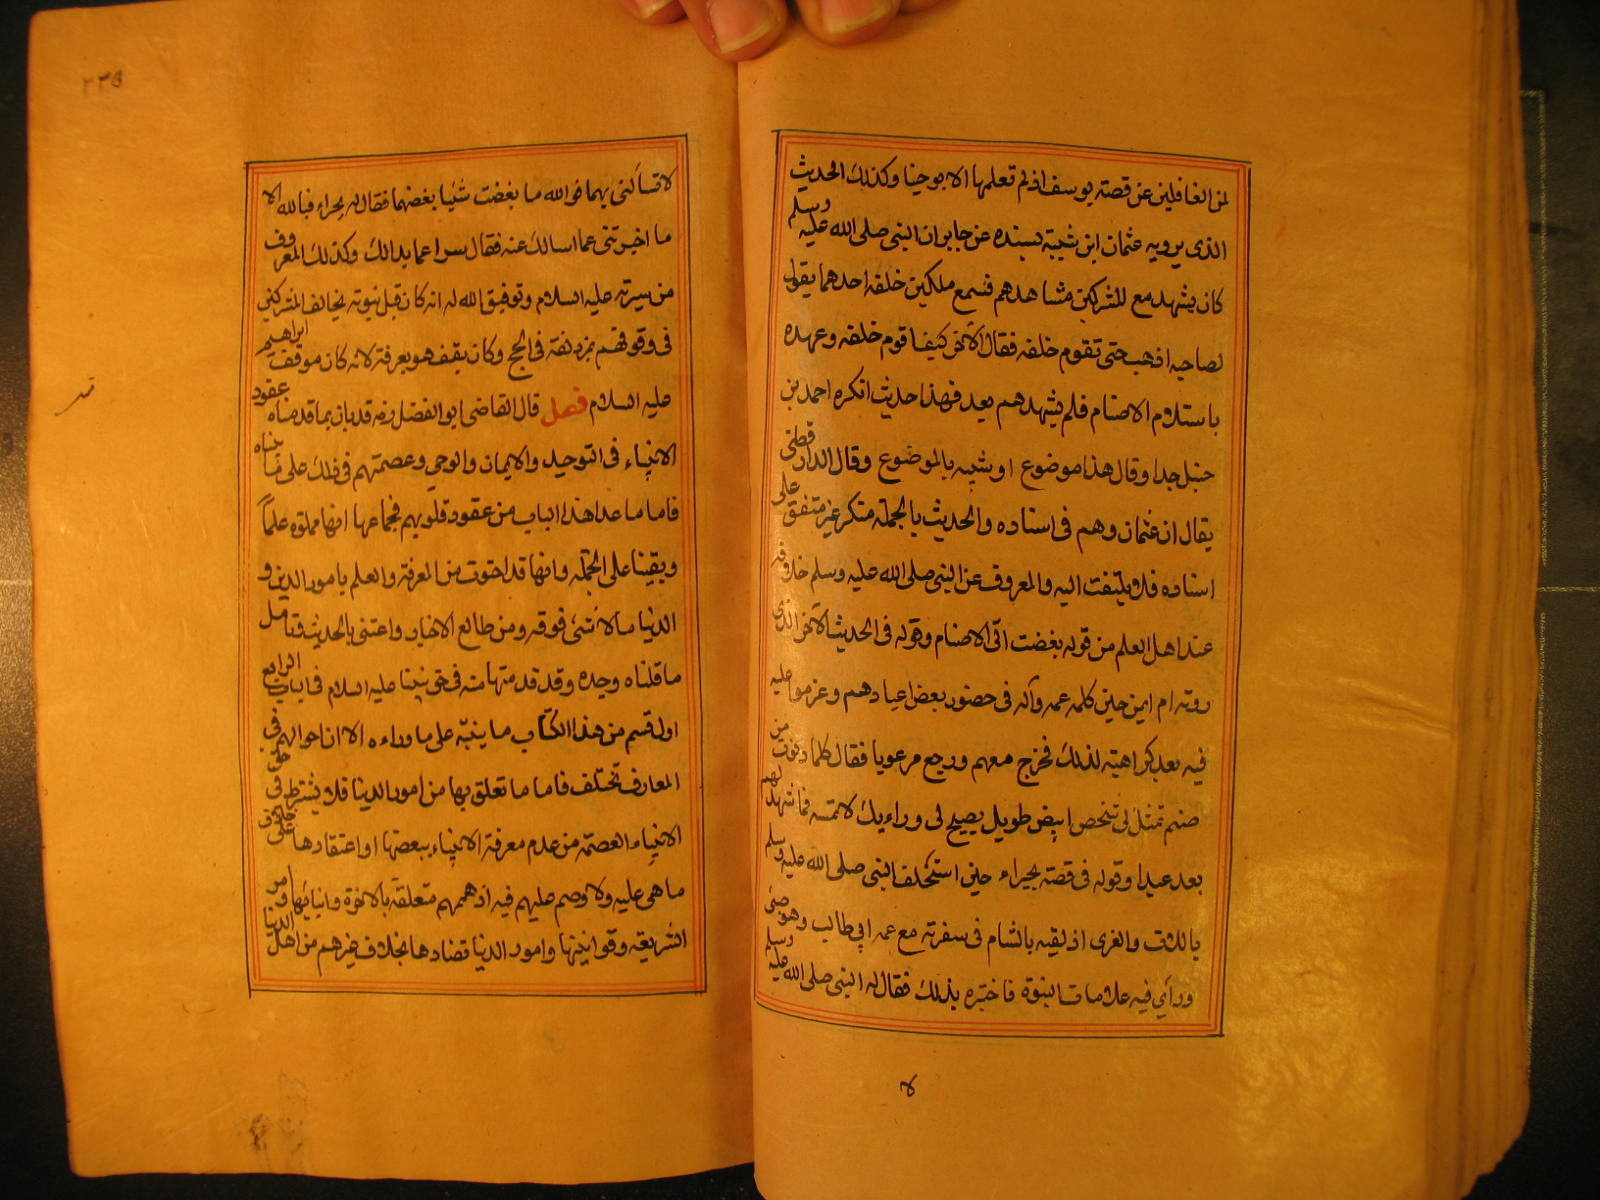 لمن الغافلين عن قصته يوسف اذ لم تعلمها الا بوحينا وكذلك الحديث
الذى يرويه عثمان ابن شيبة بسنده عن جابر ان النبى صلى الله عليه وسلم
كان يشهد مع للشركين مشاهدهم فسمع ملكين خلفه احدهما يقول
لصاحبه اذهب حتى تقوم خلفه فقال الآخر كيف اقوم خلفه وعهده
باستلام الاصنام فلم يشهدهم بعد فهذا حديث انكره احمد بن
حنبل جدا وقال هذا موضوع او شبيه بالموضوع وقال الدارقطنى
يقال ان عثمان وهم فى اسناده والحديث بالجملة منكر غير متفق على
اسناده فلا يلتفت اليه والمعروف عن النبى صلى الله عليه وسلم خلافه
عند اهل العلم من قوله بغضت الى الاصنام وقوله فى الحديث الآخر الذى
روته ام ايمن حين كلمه عمه وآله فى حضور بعض اعيادهم وعزموا عليه
فيه بعد كراهته لذلك فخرج معهم ورجع مرعوبا فقال كلما دنوت من
صنم تمثل لى شخص ابيض طويل يصيح لى وراءيك لا تمسه فما شهد لهم
بعد عيدا وقوله فى قصته بحيراء حين استحلف النبى صلى الله عليه وسلم
باللات والعزى اذ لقيه بالشام فى سفرته مع عمه ابى طالب وهو صبى
وراى فيه علامات النبوة فاختبره بذلك فقال له النبى صلى الله عليه وسلم
لا
٢٣٥
لا تسألنى بهما فوالله ما بغضت شيئا بغضهما فقال له بحيراء فبالله الا
ما اخبرتنى عما اسالك عنه فقال سل عما بدا لك وكذلك المعروف
من سيرته عليه السلام وتوفيق الله له انه كان قبل نبوته يخالف المشركين
فى وقوفهم بمزدلفة فى الحج وكان يقف هو بعرفة لانه كان موقف ابراهيم
عليه السلام فصل قال القاضى ابو الفضل رضه قد بان بما قدمناه عقود
الانبياء فى التوحيد والايمان والوحى وعصمتهم فى ذلك على ما بيناه
فاما ما عدا هذا الباب من عقود قلوبهم فجماعها انها مملوه علماً
ويقينا على الجملة وانها قد احتوت من المعرفة والعلم بامور الدين و
الدنيا ما لا شئ فوقه ومن طالع الاخبار واعتنى بالحديث وتامل
ما قلناه وجده وقد قدمنا منه فى حق نبينا عليه السلام فى الباب الرابع
اول قسم من هذا الكتاب ما ينبّه على ما وراءه الا ان احوالهم فى
المعارف تختلف فاما ما تعلق بها من امور الدنيا فلا يشترط فى حق
الانبياء العصمة من عدم معرفة الانبياء ببعضها او اعتقادها على خلاف
ما هى عليه ولا وصم عليهم فيه اذ هممهم متعلقه بالاخرة وانبائها وامر
الشريعة وقوانينها وامور الدنيا تضادها بخلاف غيرهم من اهل الدنيا